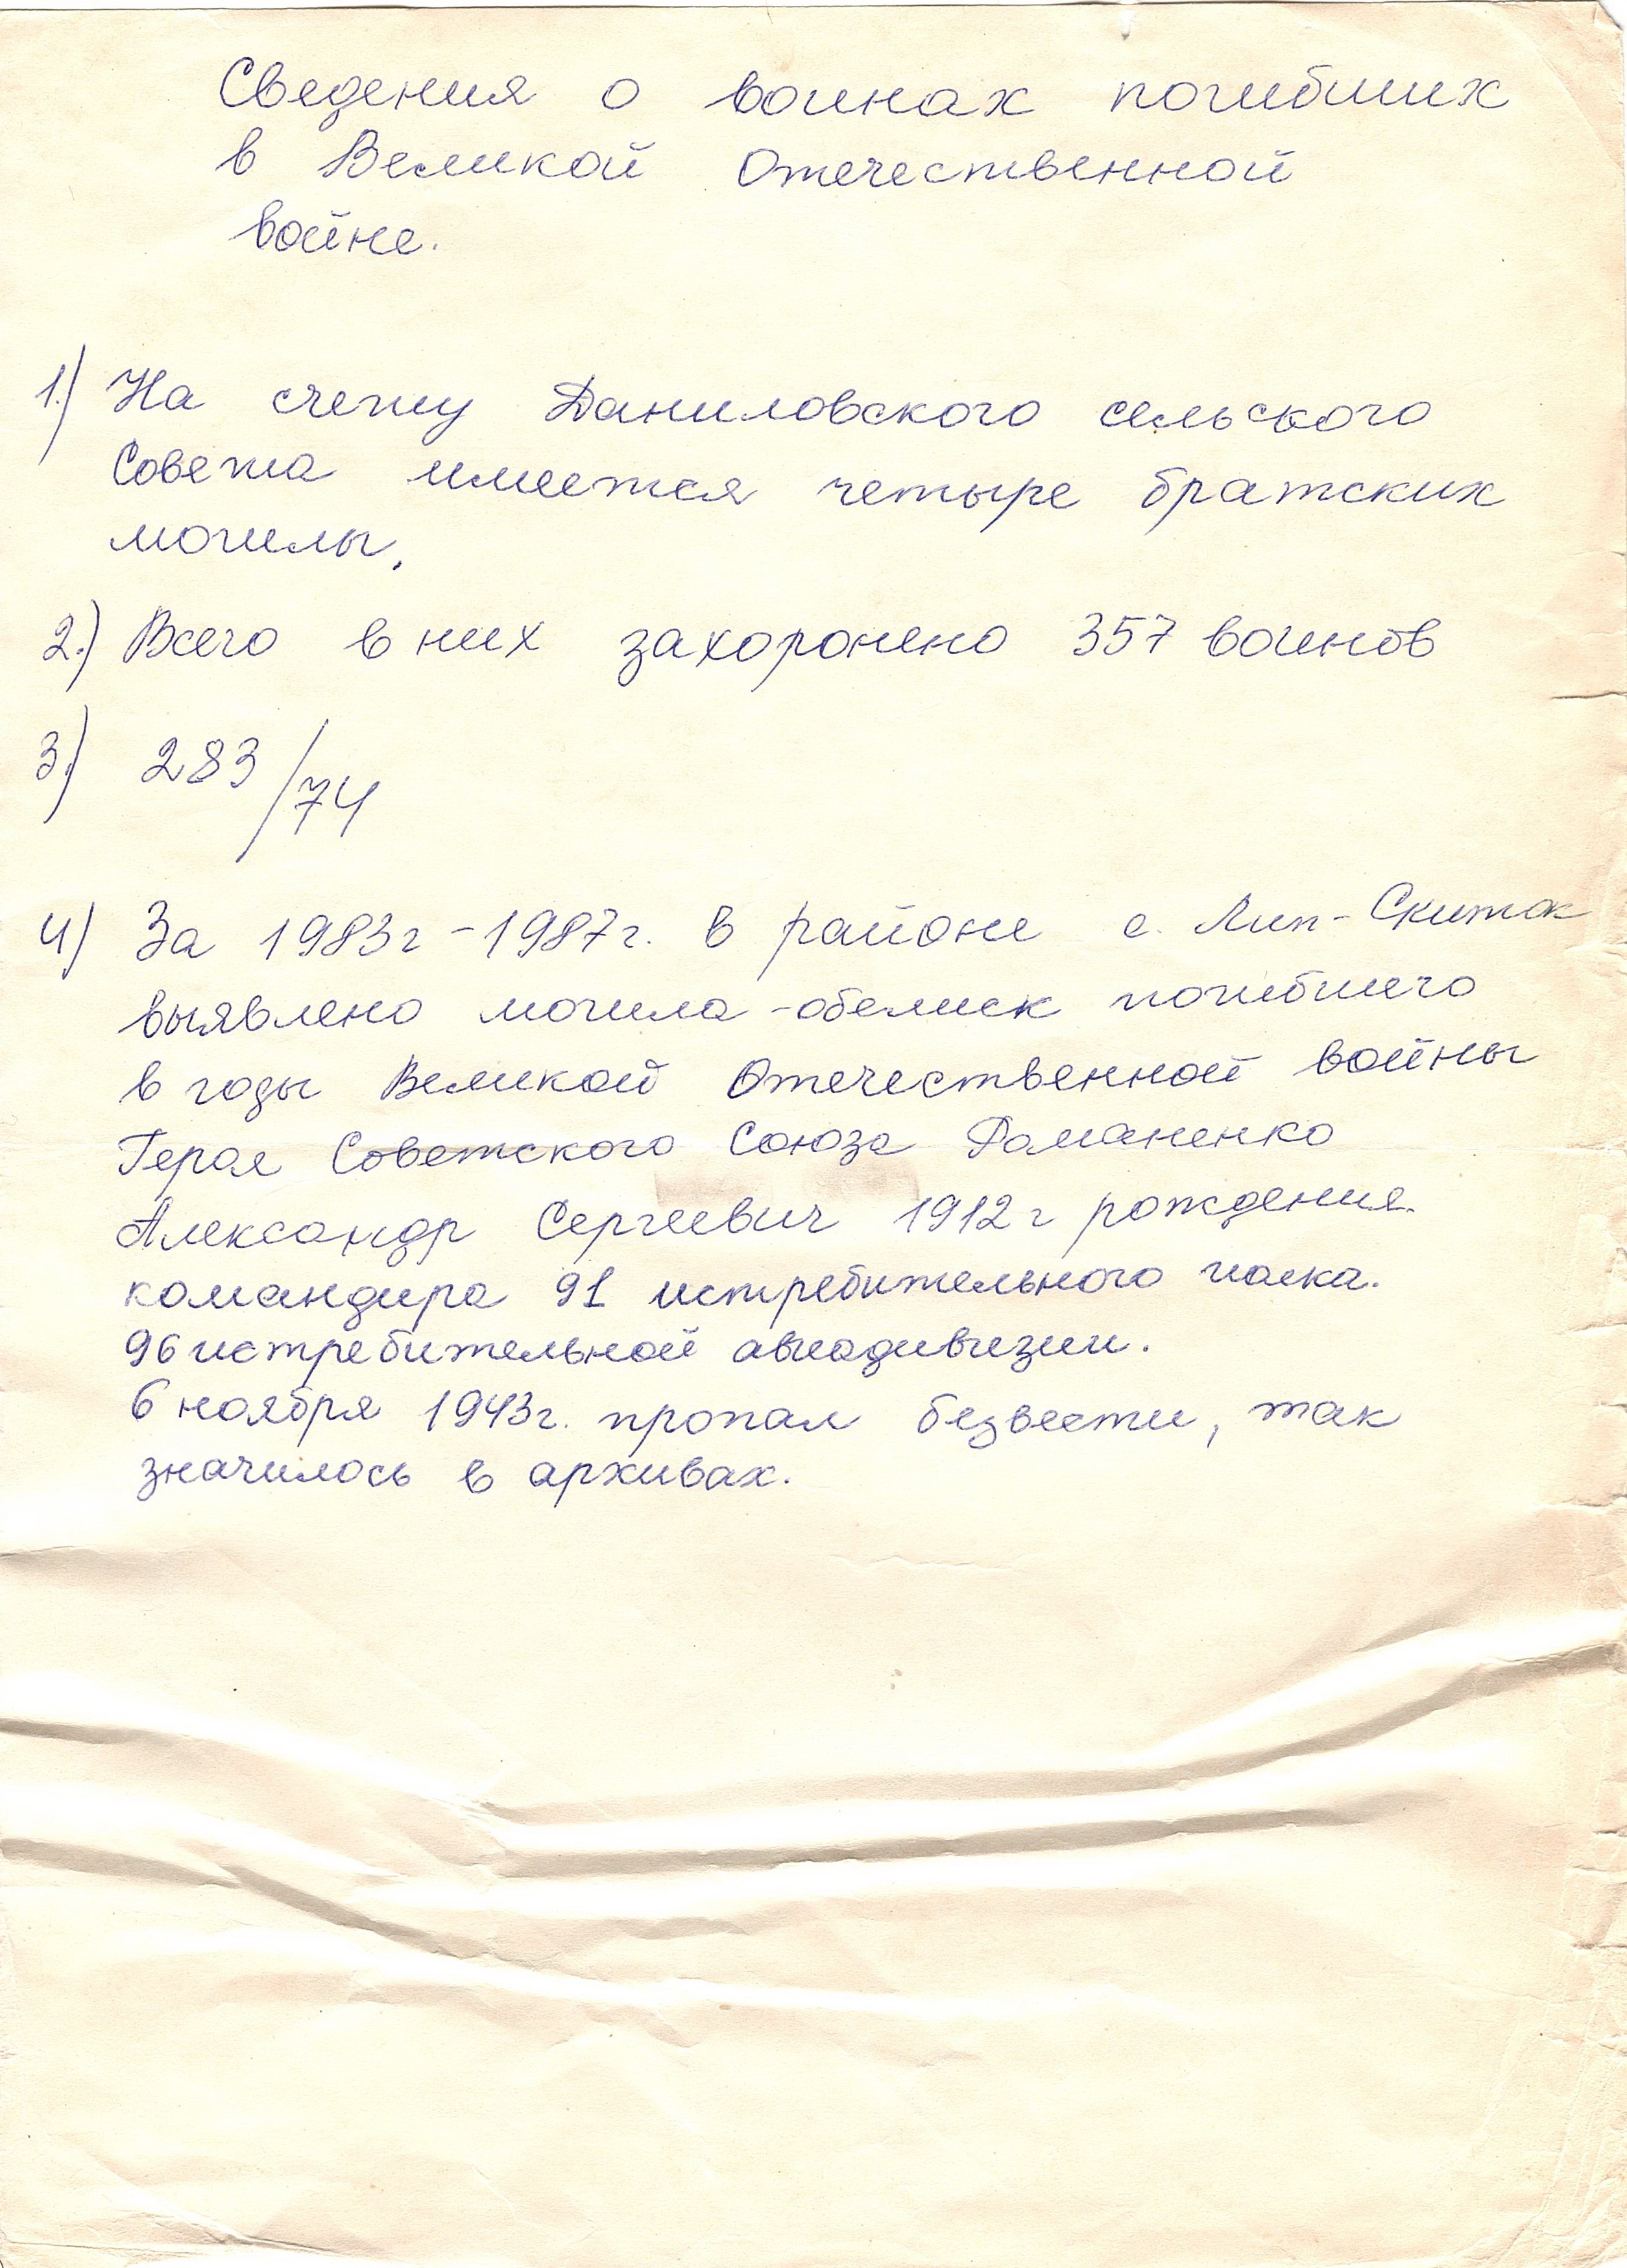 Сведения о воинах погибших
в Великой Отечественной
войне.
1.) На счету Даниловского сельского
Совета имеется четыре братских
могилы.
2.) Всего в них захоронено 357 воинов
3.) 283/74
4) За 1983г-1987г. в районе с. Лип-Скиток
выявлено могила-обелиск погибшего
в годы Великой Отечественной войны
Героя Советского Союза Романенко
Александр Сергеевич 1912г рождения.
командира 91 истребительного полка.
96 истребительной авиадивизии.
6 ноября 1943г. пропал безвести, так
значилось в архивах.